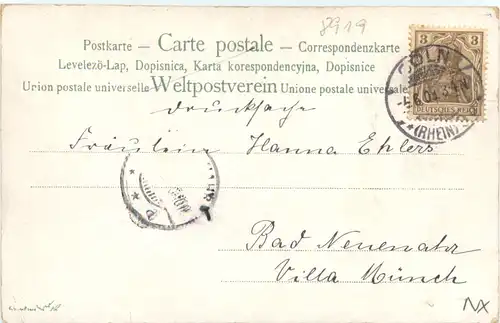 8919
Postkarte – Carte postale – Correspondenzkarte
Levelezö-Lap, Dopisnica, Karta korespondencyjna, Dopisnice
Union postale universelle Weltpostverein Unione postale universale
3 3
DEUTSCHES REICH
CÖLN
*(RHEIN)
Drucksache
Fräulein Hanna Ehlers
Bad Neuenahr
Villa Münch
NX